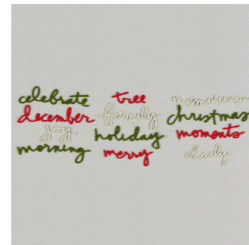 celebrate
december
joy
morning
tree
family
holiday
merry
memories
christmas
moments